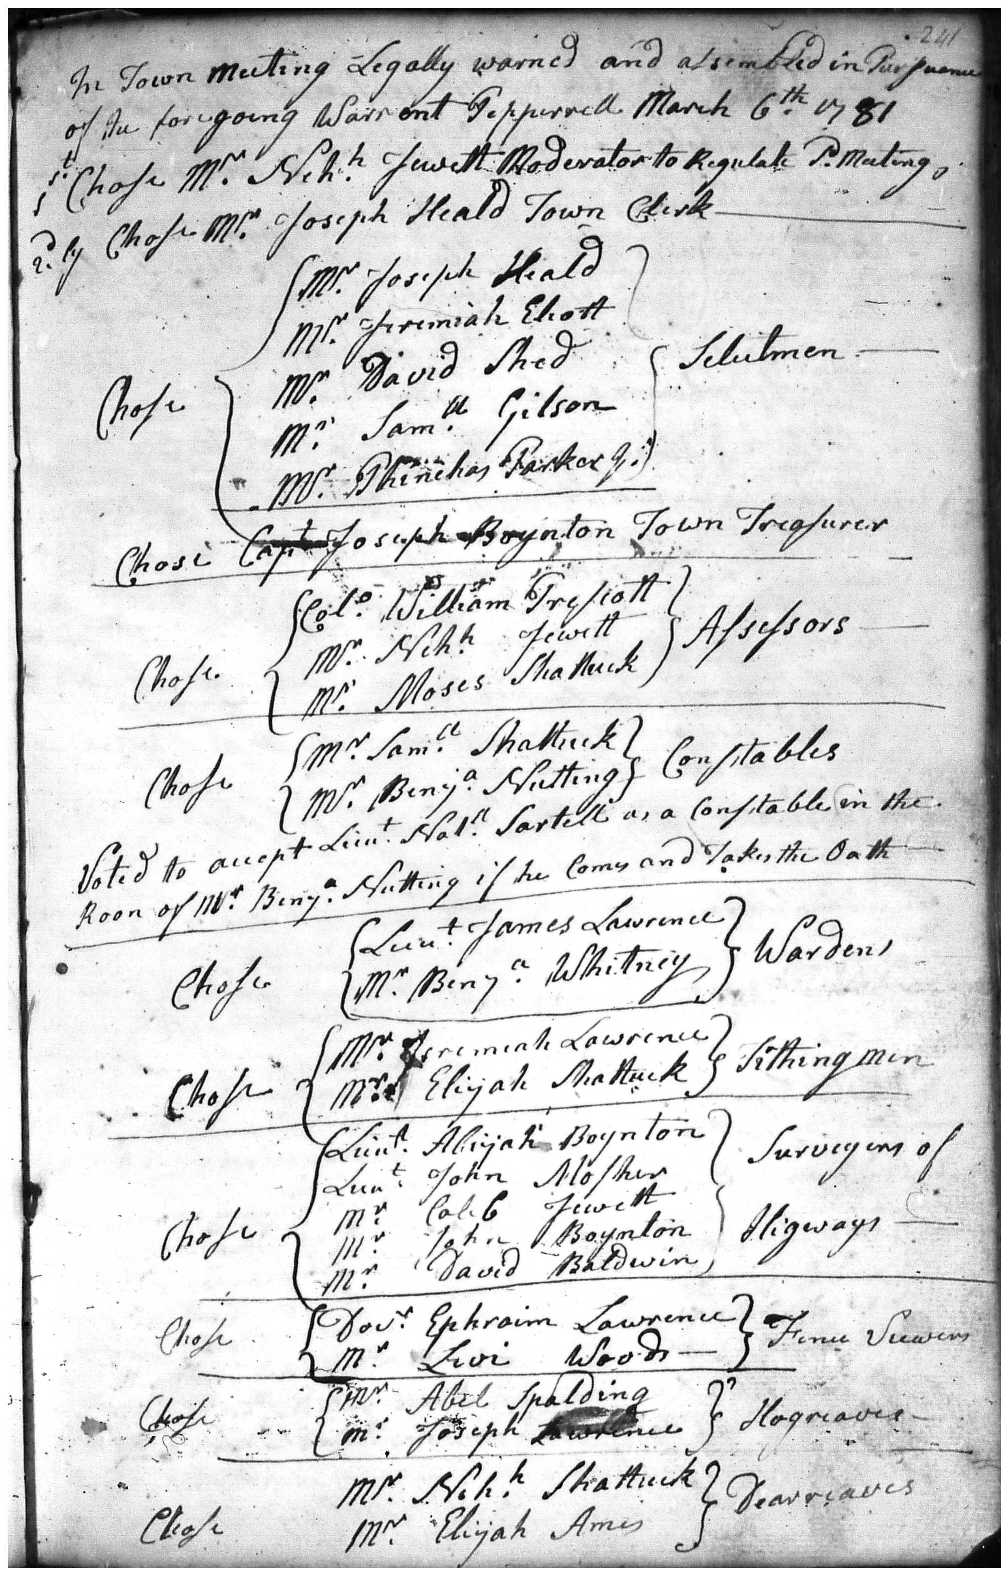 241
In Town meeting Legally warned and assembled in Pursuance
of the foregoing Warrent Pepperrell March 6th. 1781
1st. Chose Mr. Neh.h Jewett Moderator to Regulate Sd. Meeting
2.d ly Chose Mr. Joseph Heald Town Clerk
Mr. Joseph Heald
Mr. Jeremiah Eliott
Chose Mr. David Shed Selectmen
Mr. Sam.ll Gilson
Mr. Phinehas Parker Jr.
Chose Capt Joseph Boynton Town Treasurer
Colo. William Prescott
Chose Mr. Neh.h Jewett Assessors
Mr. Moses Shattuck
Chose Mr. Sam.ll Shattuck Constables
Mr. Benj.a Nutting
Voted to accept Lieut. Nat.ll Sartell as a Constable in the
Roon of Mr. Benj.a Nutting if he Comes and Takes the Oath
Lieut. James Lawrence
Chose Mr. Benj.a Whitney Wardens
Mr. Jeremiah Lawrence
Chose Mr. Elijah Shattuck Tithing men
Lieut. Abijah Boynton Surveyers of
Lieut. John Mosher
Chose Mr. Caleb Jewett Higways
Mr. John Boynton
Mr. David Baldwin
Chose Docr. Ephraim Lawrence Fence Viewers
Mr. Levi Woods
Chose Mr. Abel Spalding Hogreaves
Mr. Joseph Lawrence
Mr. Neh.h Shattuck Dearreaves
Chose Mr. Elijah Ames